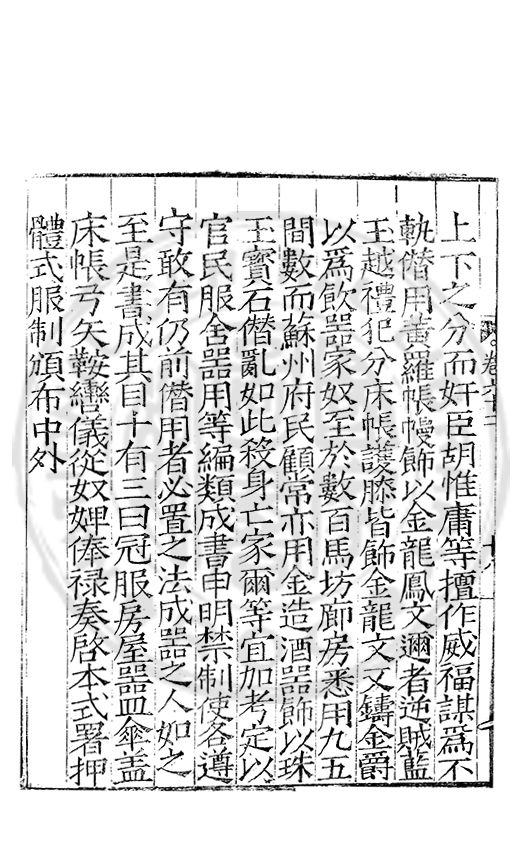 上下之分而奸臣胡惟庸等擅作威福謀爲不
軌僭用黃羅帳幔飾以金龍鳳文邇者逆賊藍
玉越禮犯分床帳護膝皆飾金龍文又鑄金爵
以爲飲器家奴至於數百馬坊廊房悉用九五
間數而蘇州府民顧常亦用金造酒器飾以珠
玉寶石僭亂如此殺身亡家爾等宜加考定以
官民服舍器用等編類成書申明禁制使各遵
守敢有仍前僭用者必置之法成器之人如之
至是書成其目十有三曰冠服房屋器皿傘盖
床帳弓矢鞍轡儀從奴婢俸禄奏啓本式署押
體式服制頒布中外